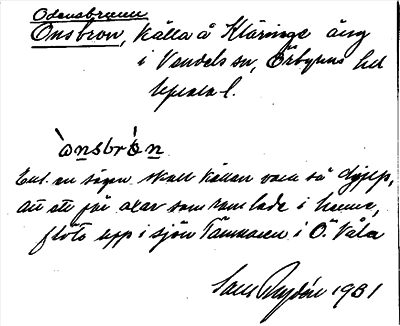 Odensbrunn
Onsbron, källa å Kläringe äng
i Vendels sn, Örbyhus hd
Upsala l.
ònsbrón
Enl. en sägen skall källan vara så djup,
att ett par oxar som ramlade i henne,
flöto upp i sjön Tämnaren i Ö. Våla
Rydén 1931